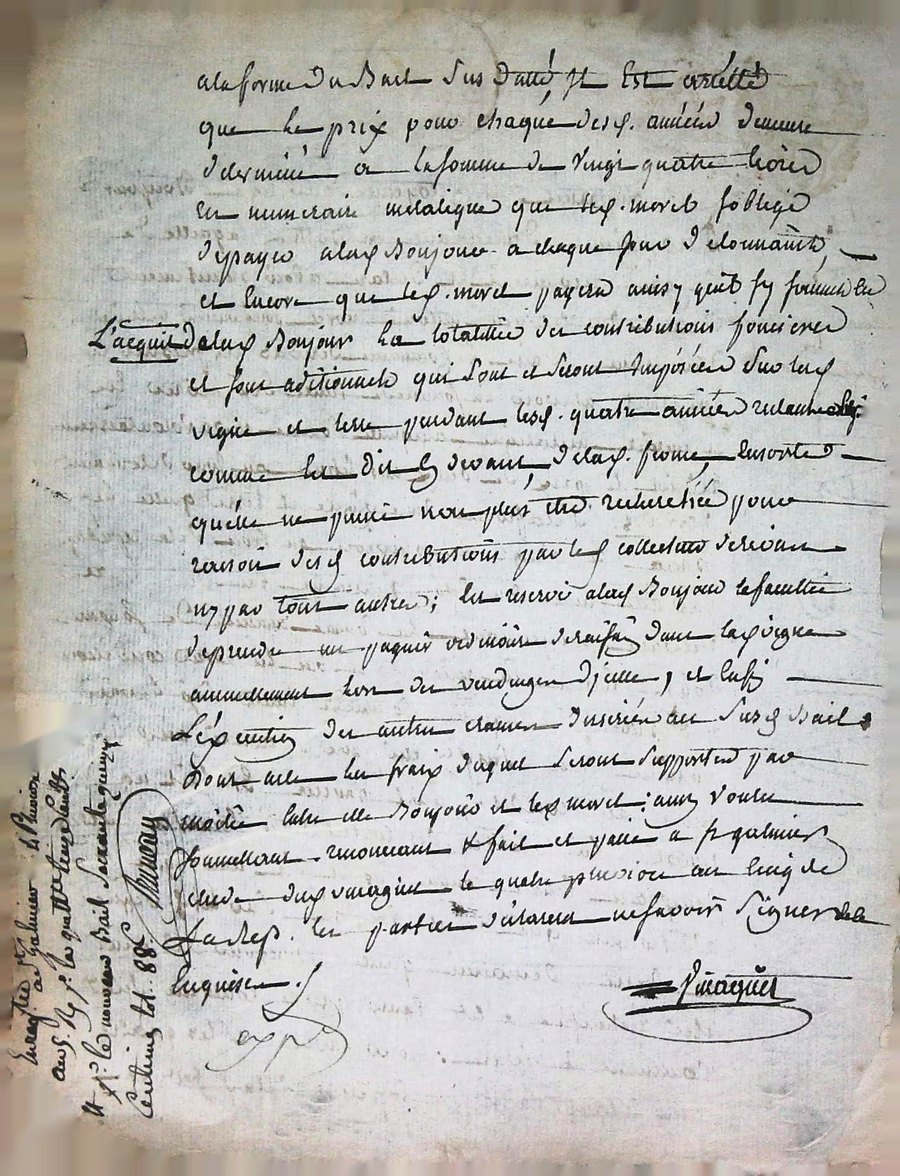 a la forme du Bail sus datté, Il Est arretté
que le prix pour chaque desd. années demeure
determiné a la somme de vingt quatre livres
en numeraire metalique que led. morel soblige
de payer a lad Bonjour a chaque jour de
et Encore que led. morel payera ainsy quil sy soumet En
L'acquit de lad Bonjour La totallité des contributions foncieres
et sous aditionnels qui sont et seront Imposées sur lad
vigne et terre pendant lesd. quatre années
comme Est dit cy devant, de lad. ferme, Ensorte
quelle ne puisse non plus être recherchée pour
raison desd contributions par les collecteurs de rivas
ny par tout autres; Est reservé a lad Bonjour la faculté
de prendre un pagnier ordinaire de raisin dans lad vigne
annuellement lors des vendanges d'icelle, et Enfin
L'éxecution des autres clauses inserées au susd Bail
Dont acte les frais duquel seront supportés par
moitié Entre elle Bonjour et led morel; ainsy voulu
soumettant renoncant & fait et passé a st galmier
Etude dud le quatre pluviose an cinq de
La Rep. les parties declarent ne savoir signer de ce
Enquises
Enregtré a St Galmier le Pluviose
an 5. Ry pr. la quitt
et pr. le nouveau Bail Soixante quinze
Centimes tot. 88c